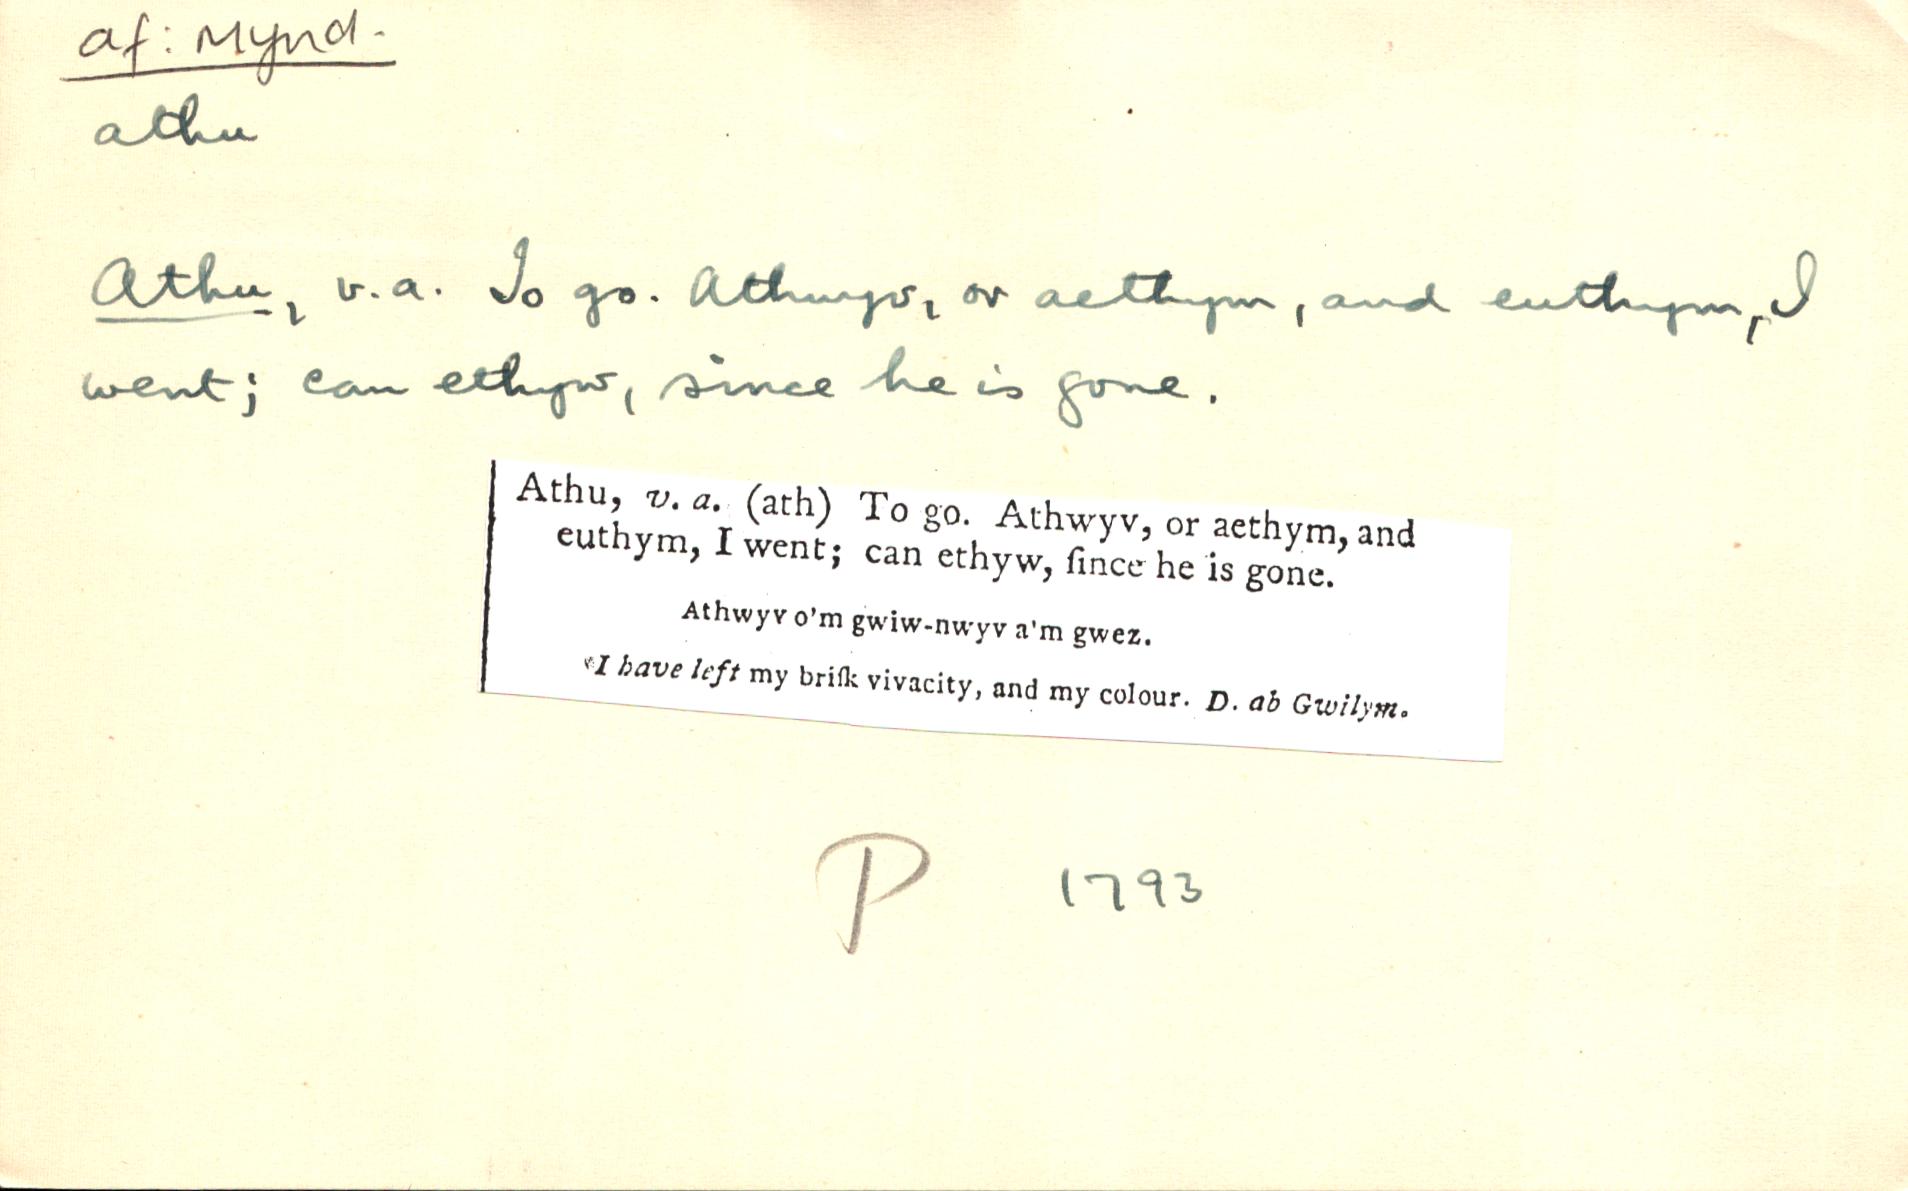 af: Mynd.
athu
Athu, v.a. To go. Athwyv, or aethym, and euthym, I
went; can ethyw, since he is gone.
Athu, v. a. (ath) To go. Athwyv, or aethym, and
euthym, I went; can ethyw, ſince he is gone.
Athwyv o'm gwiw-nwyv a'm gwez.
I have left my briſk vivacity, and my colour. D. ab Gwilym.
P 1793